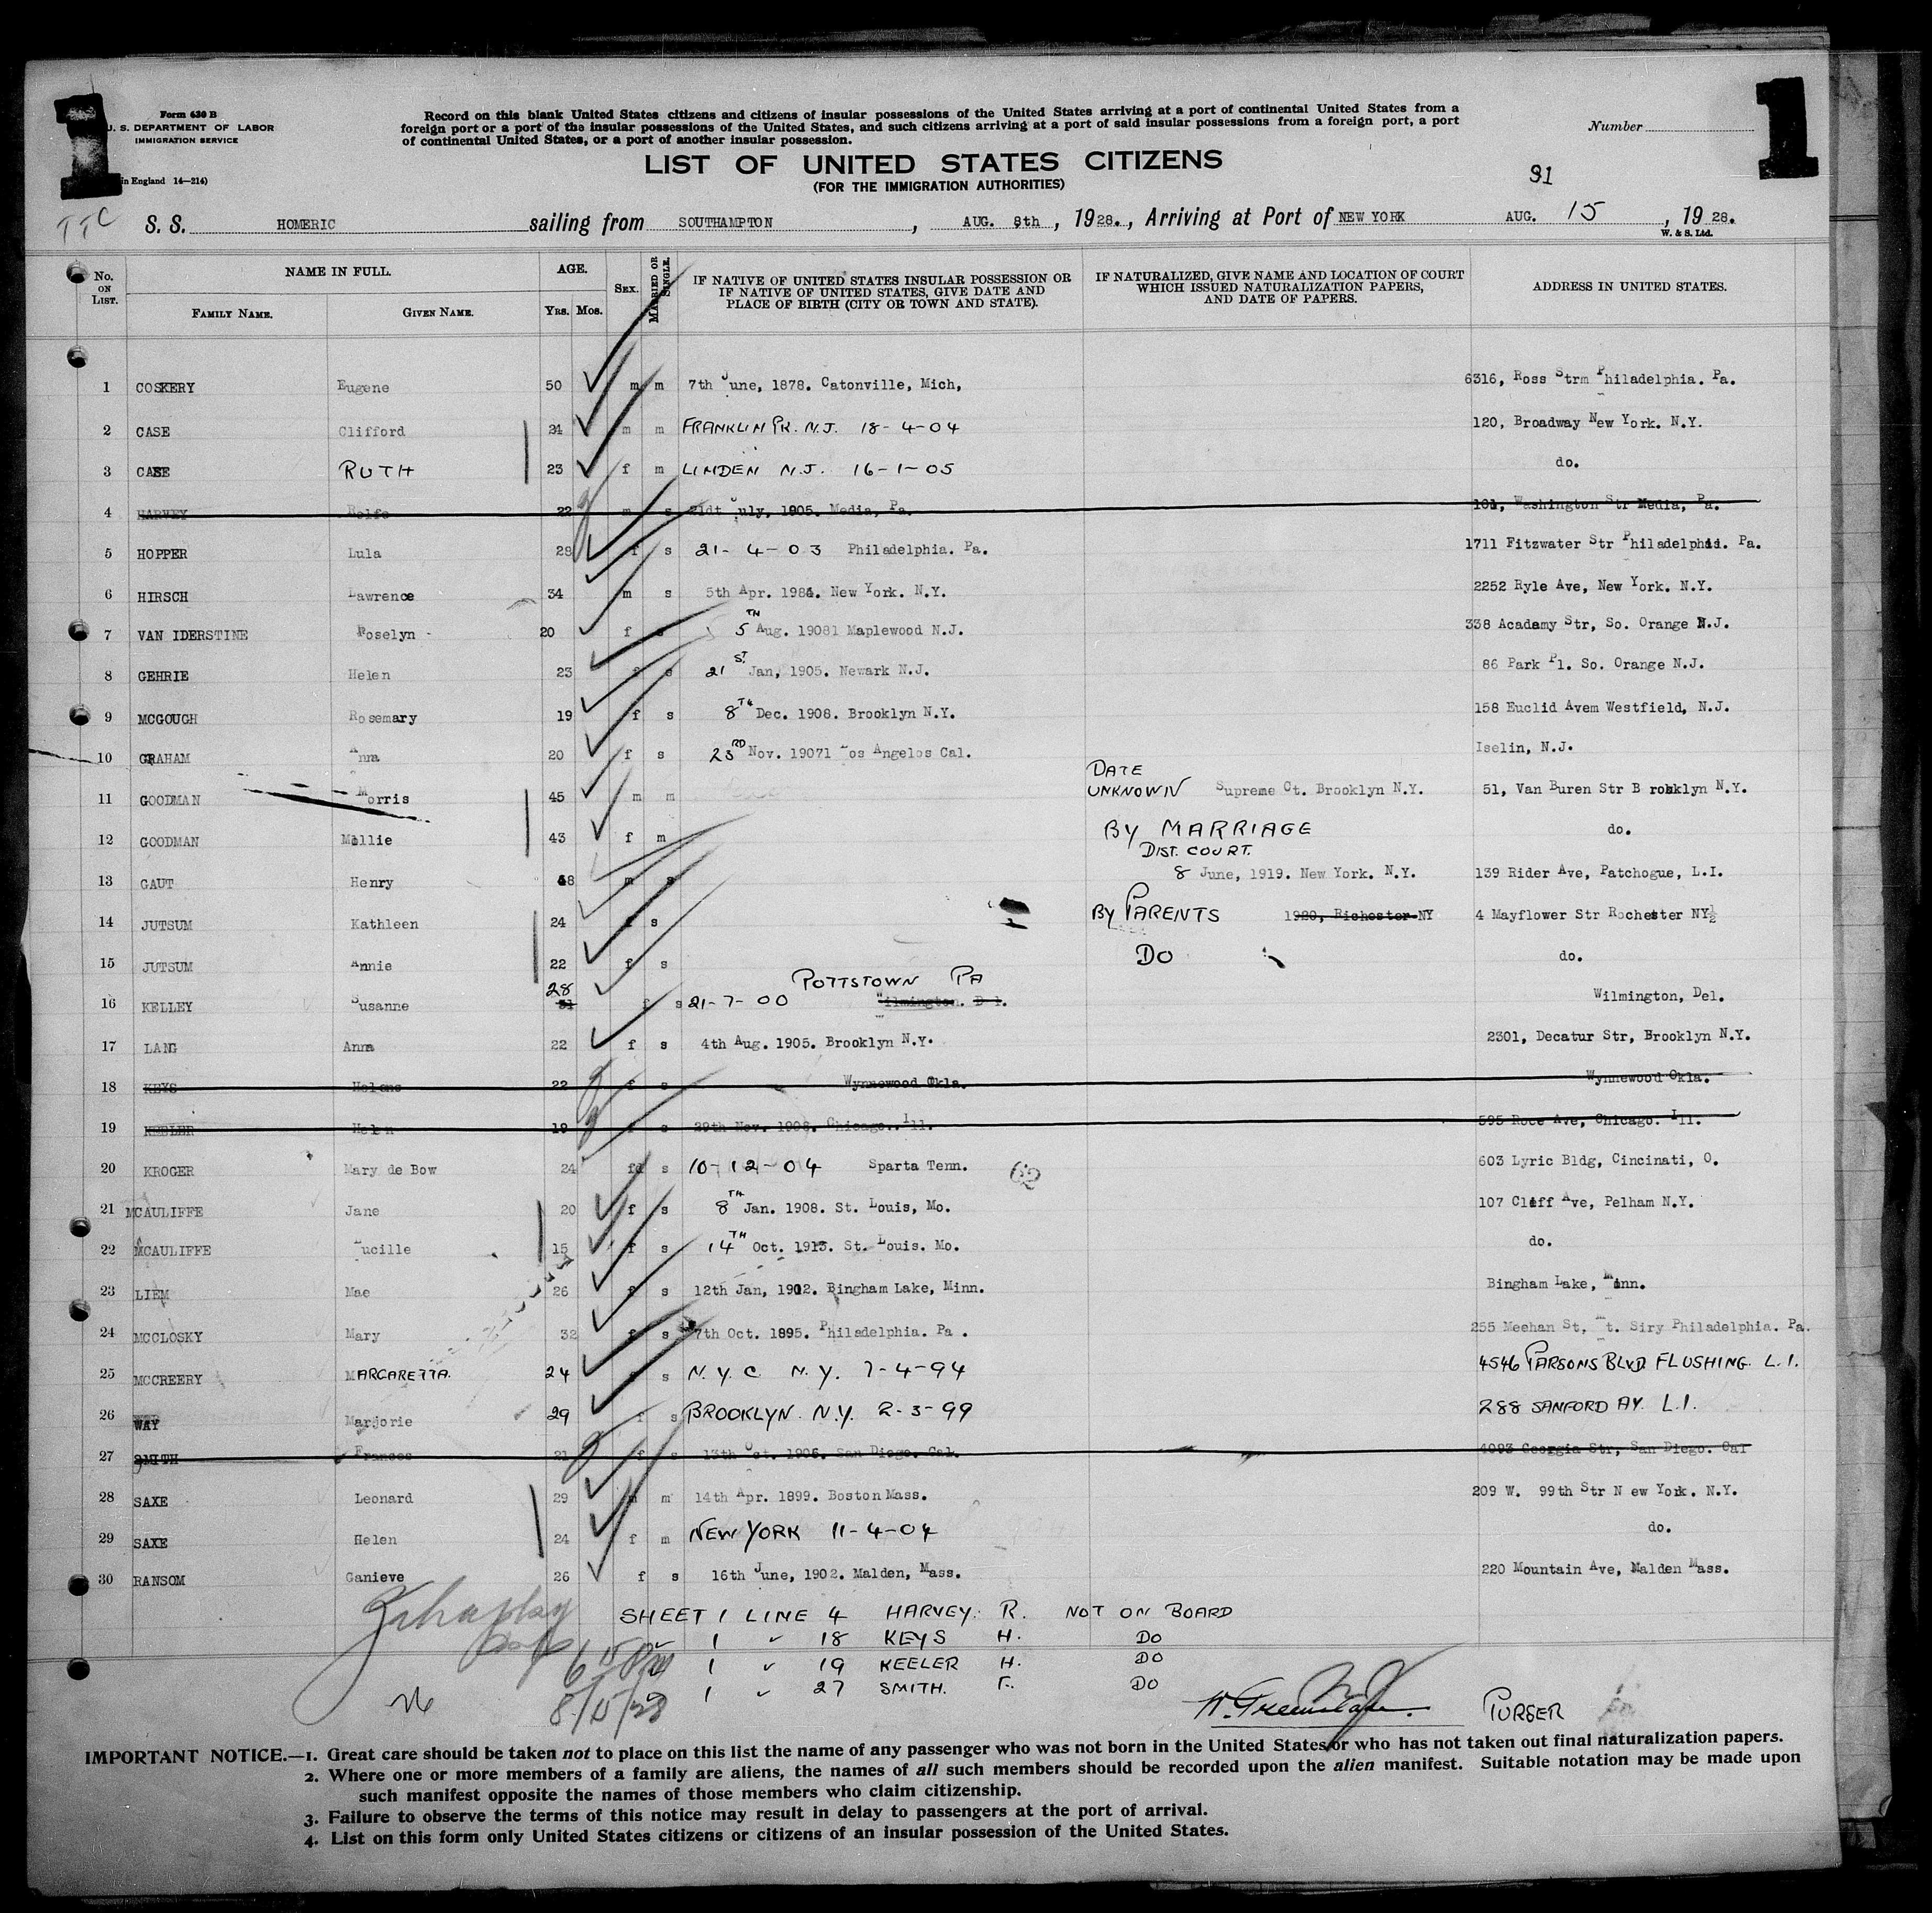 1 1
Form 630 B
U. S. DEPARTMENT OF LABOR
IMMIGRATION SERVICE
in England 14—214)
Record on this blank United States citizens and citizens of insular possessions of the United States arriving at a port of continental United States from a
foreign port or a port of the insular possessions of the United States, and such citizens arriving at a port of said insular possessions from a foreign port, a port
of continental United States, or a port of another insular possession.
Number
LIST OF UNITED STATES CITIZENS
(FOR THE IMMIGRATION AUTHORITIES)
91
TTC S. S. HOMERIC sailing from SOUTHAMPTON, AUG. 8th, 1928., Arriving at Port of NEW YORK AUG. 15, 1928.
W. & S. Ltd.
No. ON LIST. NAME IN FULL. FAMILY NAME. GIVEN NAME. AGE. YRS. MOS. SEX. MARRIED OR SINGLE. IF NATIVE OF UNITED STATES INSULAR POSSESSION OR IF NATIVE OF UNITED STATES, GIVE DATE AND PLACE OF BIRTH (CITY OR TOWN AND STATE). IF NATURALIZED, GIVE NAME AND LOCATION OF COURT WHICH ISSUED NATURALIZATION PAPERS, AND DATE OF PAPERS. ADDRESS IN UNITED STATES.
1 COSKERY Eugene 50 m m 7th June, 1878. Catonville, Mich, 6316, Ross Strm Philadelphia. Pa.
2 CASE Clifford 24 m m FRANKLIN PK. N.J. 18-4-04 120, Broadway New York. N.Y.
3 CASE RUTH 23 f m LINDEN N.J. 16-1-05 do.
4 HARVEY Rolfe 22 m s 21dt July, 1905. Media, Pa. 101, Washington Str Media, Pa.
5 HOPPER Lula 28 f s 21-4-03 Philadelphia. Pa. 1711 Fitzwater Str Philadelphia. Pa.
6 HIRSCH Lawrence 34 m s 5th Apr. New York. N.Y. 2252 Ryle Ave, New York. N.Y.
7 VAN IDERSTINE Roselyn 20 f s 5TH Aug. 19081 Maplewood N.J. 338 Acadamy Str, So. Orange N.J.
8 GEHRIE Helen 23 f s 21ST Jan, 1905. Newark N.J. 86 Park Pl. So. Orange N.J.
9 MCGOUGH Rosemary 19 f s 8TH Dec. 1908. Brooklyn N.Y. 158 Euclid Avem Westfield, N.J.
10 GRAHAM Anna 20 f s 23RD Nov. 19071 Los Angelos Cal. Iselin, N.J.
11 GOODMAN Morris 45 m m DATE UNKNOWN Supreme Ct. Brooklyn N.Y. 51, Van Buren Str Brooklyn N.Y.
12 GOODMAN Mollie 43 f m BY MARRIAGE do.
13 GAUT Henry m s DIST. COURT. 8 June, 1919. New York. N.Y. 139 Rider Ave, Patchogue, L.I.
14 JUTSUM Kathleen 24 f s BY PARENTS 1920, Richester NY 4 Mayflower Str Rochester NY
15 JUTSUM Annie 22 f s DO do.
16 KELLEY Susanne 28 31 f s 21-7-00 POTTSTOWN PA Wilmington. D l. Wilmington, Del.
17 LANG Anna 22 f s 4th Aug. 1905. Brooklyn N.Y. 2301, Decatur Str, Brooklyn N.Y.
18 KEYS Helene 22 f s Wynnewood Okla. Wynnewood Okla.
19 KEELER Helen 19 f s 29th Nov. 1908. Chicago. Ill. 595 Roce Ave, Chicago. Ill.
20 KROGER Mary de Bow 24 fd s 10-12-04 Sparta Tenn. 62 603 Lyric Bldg, Cincinati, O.
21 MCAULIFFE Jane 20 f s 8TH Jan. 1908. St. Louis, Mo. 107 Cliff Ave, Pelham N.Y.
22 MCAULIFFE Lucille 15 f s 14TH Oct. 1913. St. Louis. Mo. do.
23 LIEM Mae 26 f s 12th Jan, 1902. Bingham Lake, Minn. Bingham Lake, Minn.
24 MCCLOSKY Mary 32 f s 7th Oct. 1895. Philadelphia. Pa. 255 Meehan St, Mt. Siry Philadelphia. Pa.
25 MCCREERY MARGARETTA. 24 f s N.Y.C N.Y. 7-4-94 4546 PARSONS BLVD. FLUSHING. L.I.
26 WAY Marjorie 29 f s BROOKLYN. N.Y. 2-3-99 288 SANFORD AY. L.I.
27 SMITH Frances 21 f s 13th Oct. 1906. San Diego. Cal. 4093 Georgia Str, San Diego. Cal
28 SAXE Leonard 29 m m 14th Apr. 1899. Boston Mass. 209 W. 99th Str New York. N.Y.
29 SAXE Helen 24 f m NEW YORK 11-4-04 do.
30 RANSOM Ganieve 26 f s 16th June, 1902. Malden, Mass. 220 Mountain Ave, Malden Mass.
SHEET 1 LINE 4 HARVEY. R. NOT ON BOARD
1 " 18 KEYS H. DO
1 " 19 KEELER H. DO
1 " 27 SMITH. F. DO
6 15 PM
8/15/28
26
PURSER
IMPORTANT NOTICE.—1. Great care should be taken not to place on this list the name of any passenger who was not born in the United States or who has not taken out final naturalization papers.
2. Where one or more members of a family are aliens, the names of all such members should be recorded upon the alien manifest. Suitable notation may be made upon
such manifest opposite the names of those members who claim citizenship.
3. Failure to observe the terms of this notice may result in delay to passengers at the port of arrival.
4. List on this form only United States citizens or citizens of an insular possession of the United States.